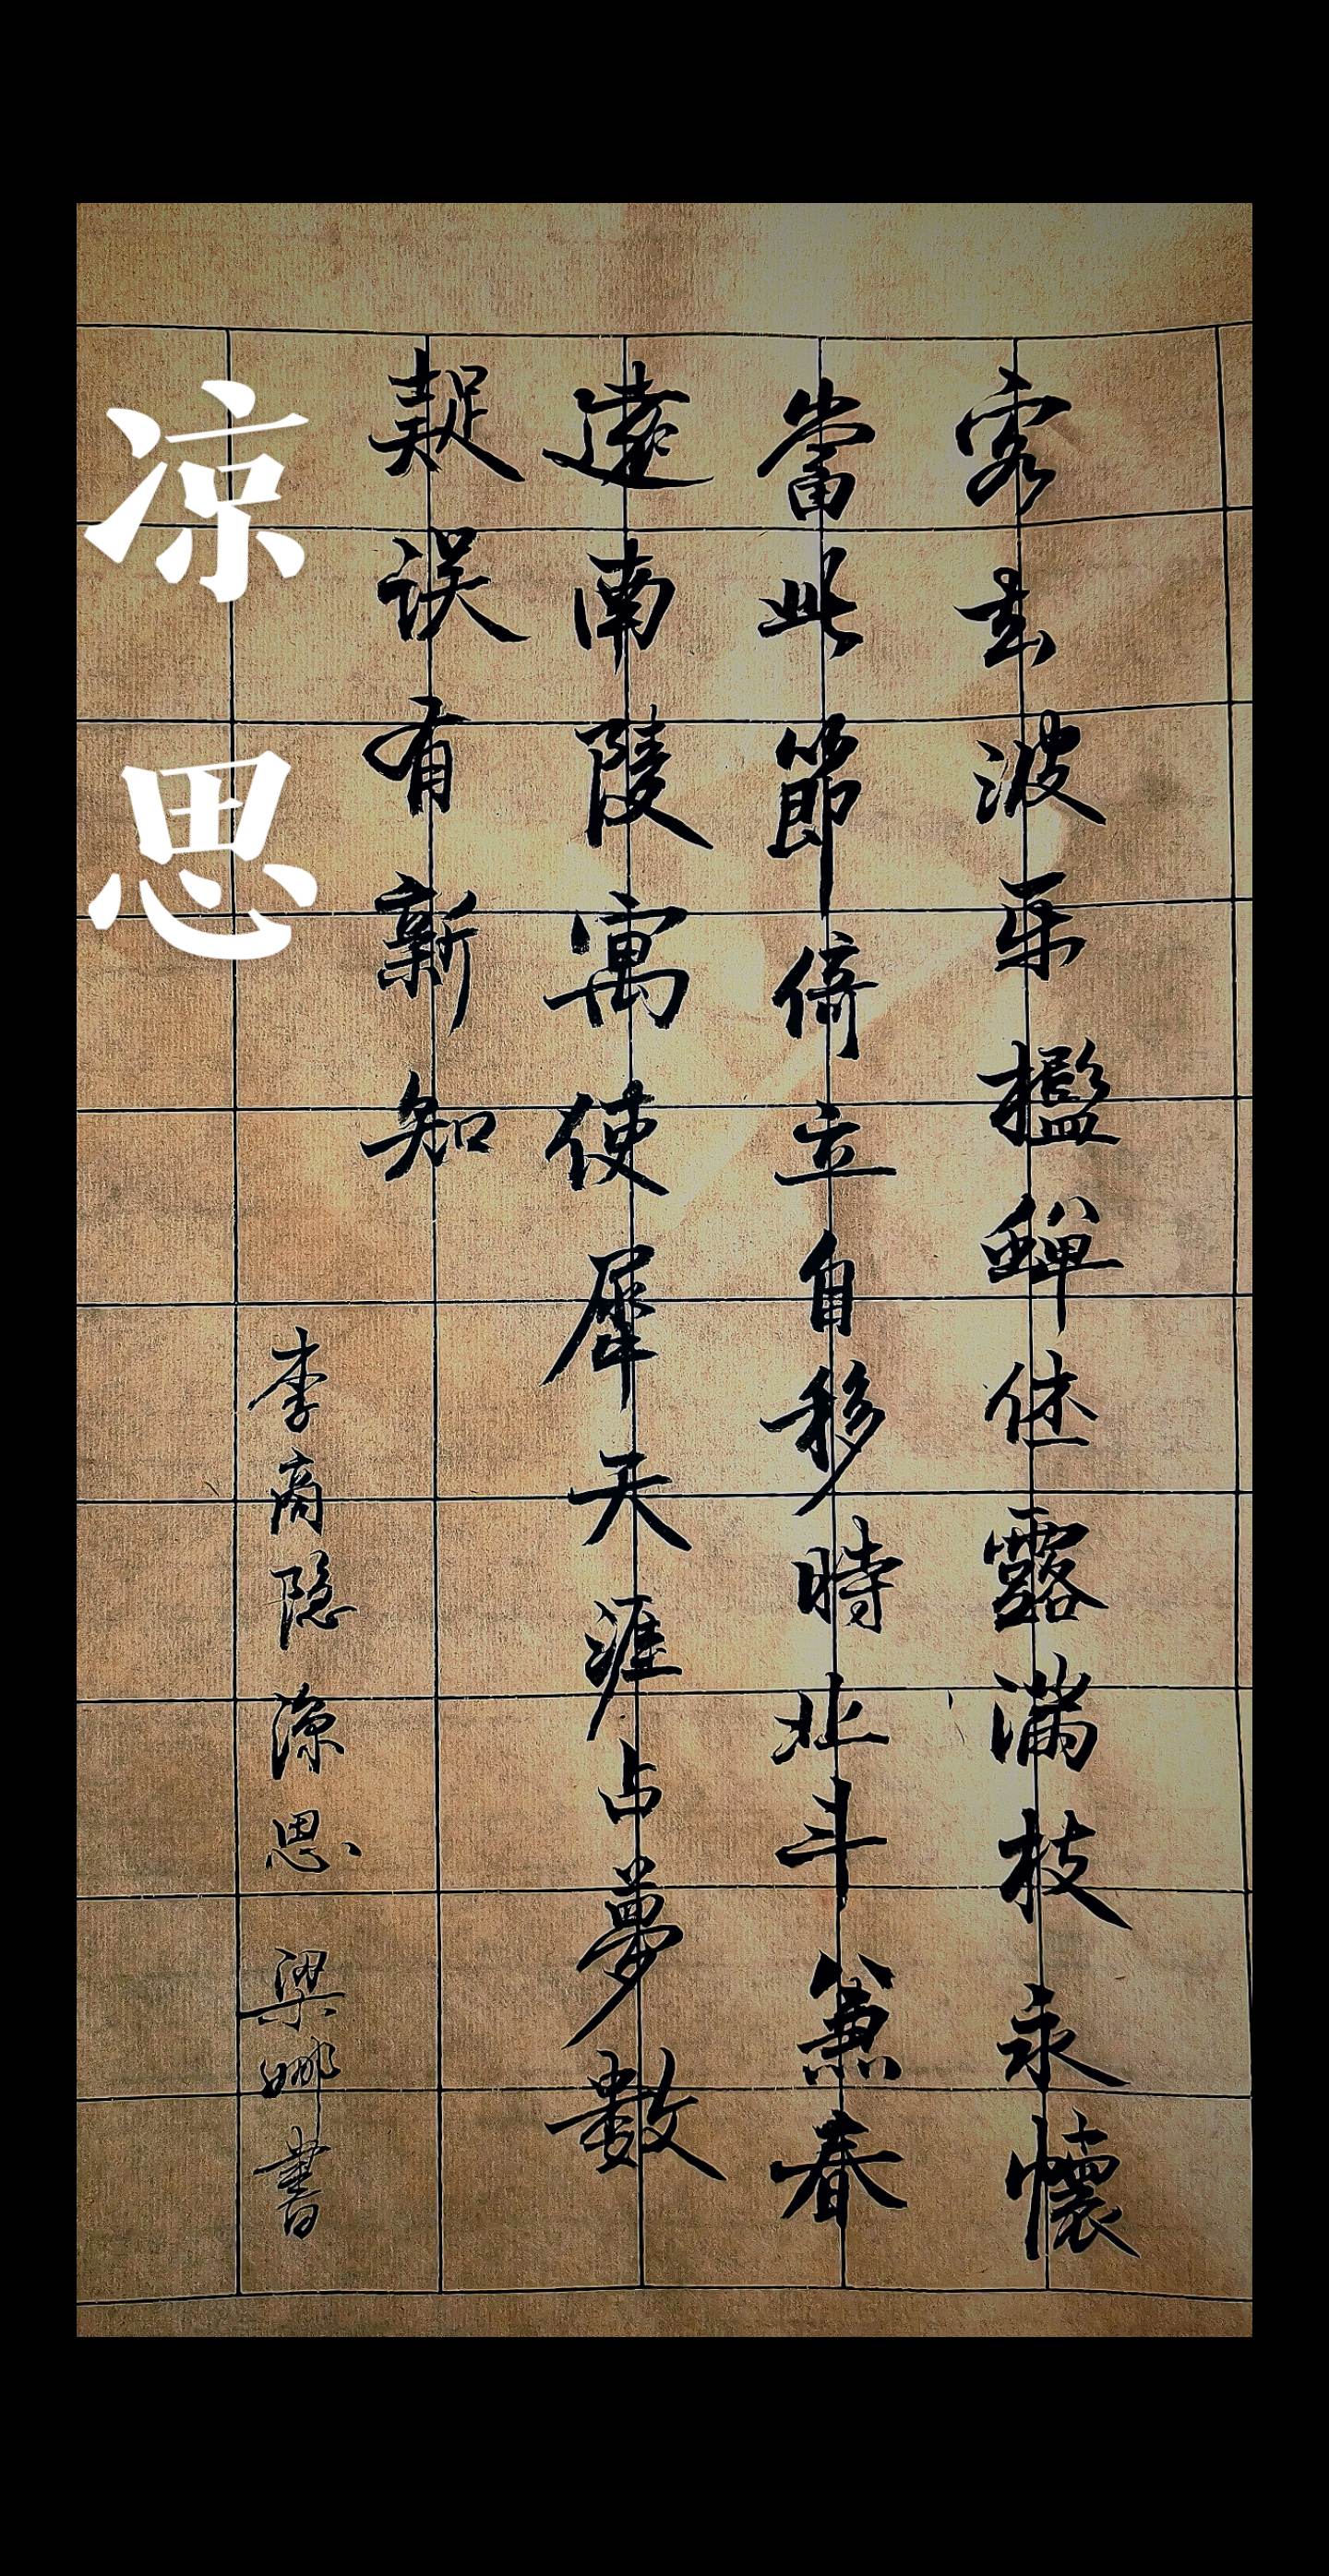 客去波平檻蟬休露滿枝永懷
當此節倚立自移時北斗兼春
遠南陵寓使犀天涯占夢數
疑误有新知
李商隐涼思 梁娜書
凉思